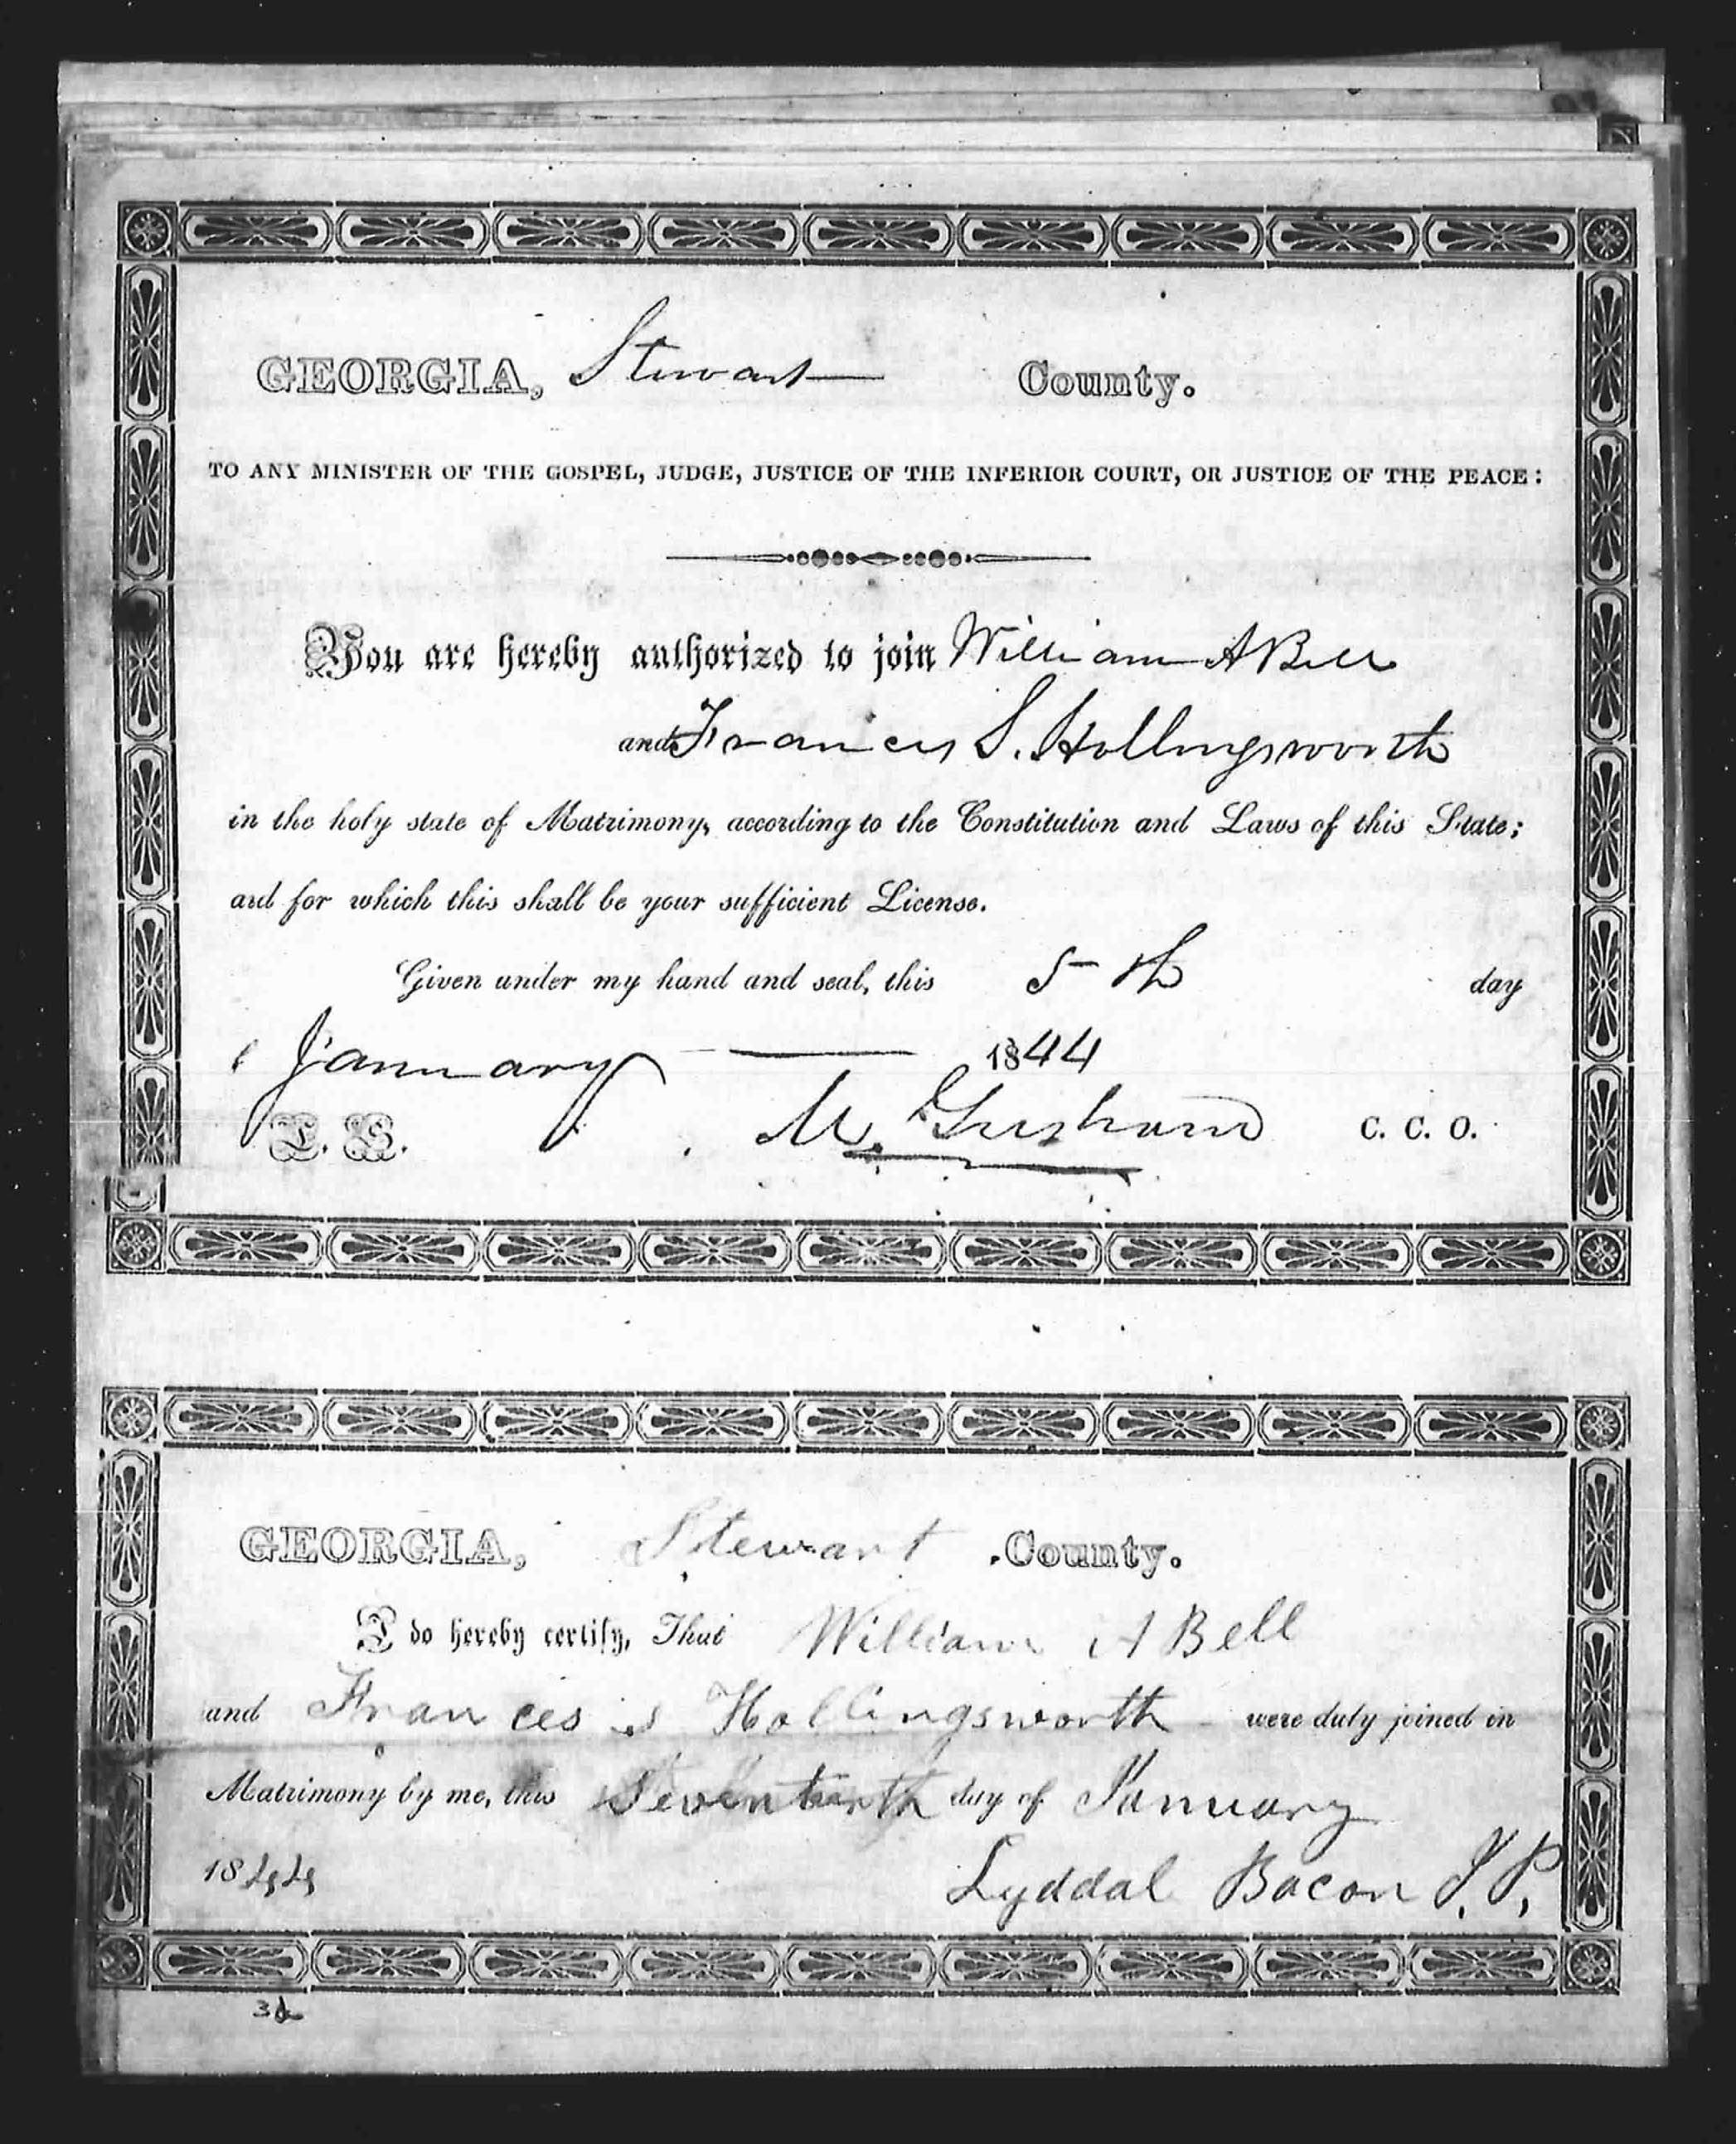 GEORGIA, Stewart County.
TO ANY MINISTER OF THE GOSPEL, JUDGE, JUSTICE OF THE INFERIOR COURT, OR JUSTICE OF THE PEACE:
You are hereby authorized to join William A Bell
and Frances S. Hollingsworth
in the holy state of Matrimony, according to the Constitution and Laws of this State;
and for which this shall be your sufficient License.
Given under my hand and seal, this 5th day
January 1844
L. S. M. Gresham C. C. O.
GEORGIA, Stewart County.
I do hereby certify, That William A Bell
and Frances S Hollingsworth were duly joined in
Matrimony by me, this Seventeenth day of January
1844 Lyddal Bacon J. P.